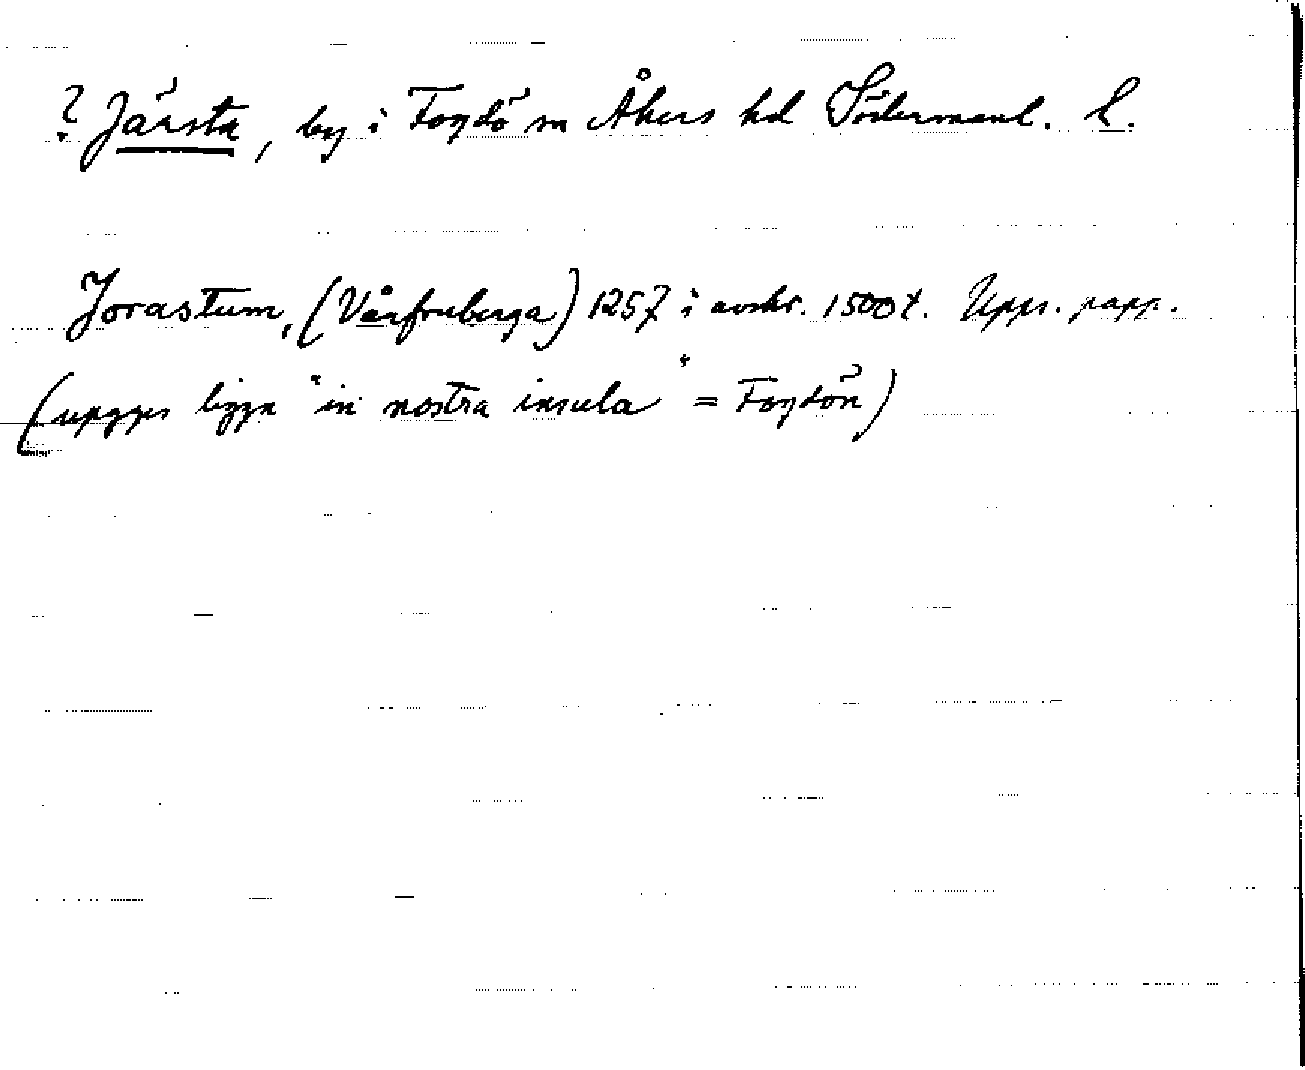 ? Järsta, by i Fogdö sn Åkers hd Södermanl. L.
Jorastum, (Vårfruberga) 1257 i avskr. 1500t. Upps. papp.
(uppges ligga "in nostra insula" = Fogdön)